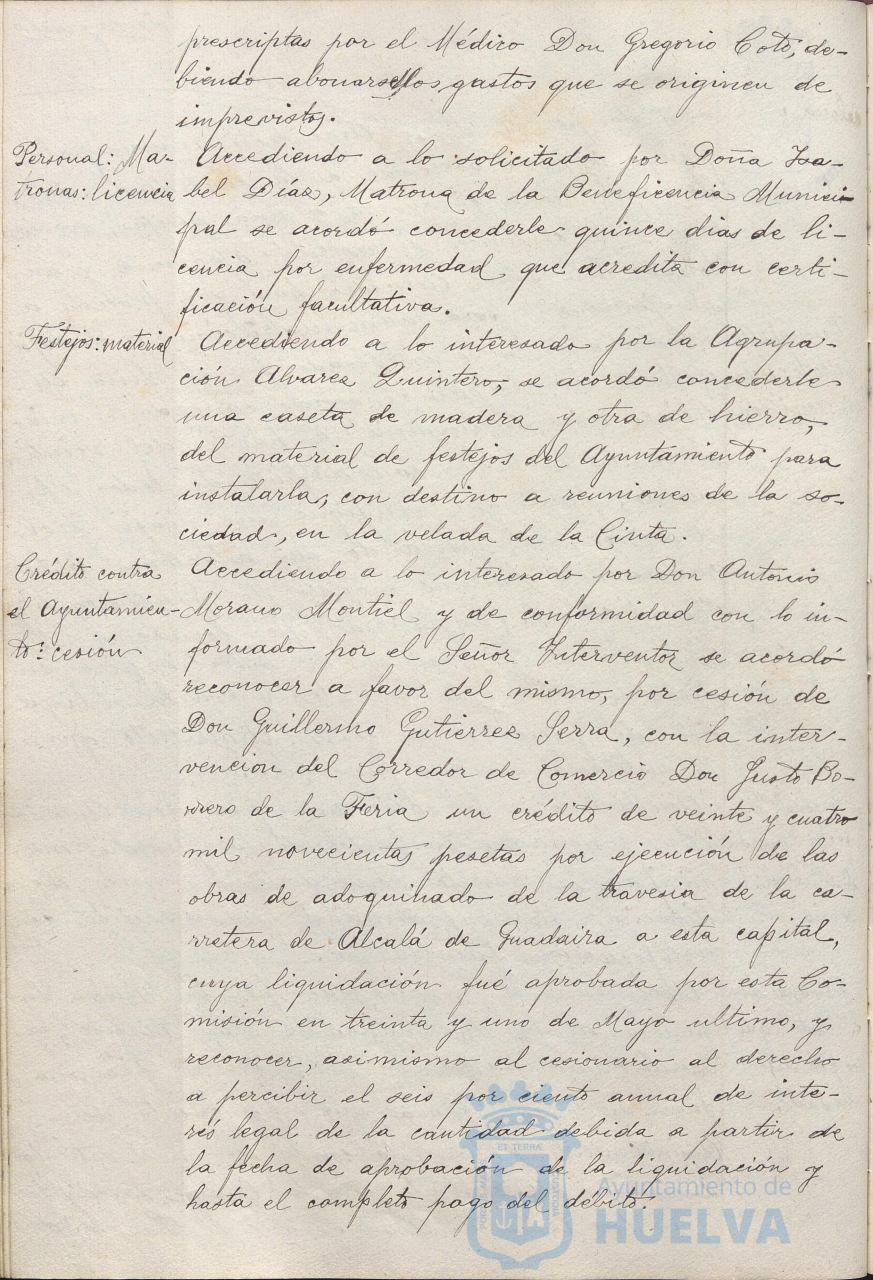 prescriptas por el Médico Don Gregorio Coto, de-
biendo abonarse los gastos que se originen de
imprevistos.
Personal: Ma-
tronas: licencia
Accediendo a lo solicitado por Doña Isa-
bel Díaz, Matrona de la Beneficencia Munici-
pal se acordó concederle quince dias de li-
cencia por enfermedad que acredita con certi-
ficación facultativa.
Festejos: material
Accediendo a lo interesado por la Agrupa-
ción Alvarez Quintero, se acordó concederle
una caseta de madera y otra de hierro,
del material de festejos del Ayuntamiento para
instalarla, con destino a reuniones de la so-
ciedad, en la velada de la Cinta.
Crédito contra
el Ayuntamien-
to: cesión
Accediendo a lo interesado por Don Antonio
Morano Montiel y de conformidad con lo in-
formado por el Señor Interventor se acordó
reconocer a favor del mismo, por cesión de
Don Guillermo Gutiérrez Serra, con la inter-
vencion del Corredor de Comercio Don Justo Bo-
rrero de la Feria un crédito de veinte y cuatro
mil novecientas pesetas por ejecución de las
obras de adoquinado de la travesia de la ca-
rretera de Alcalá de Guadaira a esta capital,
cuya liquidación fué aprobada por esta Co-
misión en treinta y uno de Mayo ultimo, y
reconocer, asimismo al cesionario al derecho
a percibir el seis por ciento anual de inte-
rés legal de la cantidad debida a partir de
la fecha de aprobación de la liquidación y
hasta el completo pago del débito.
Ayuntamiento de
HUELVA